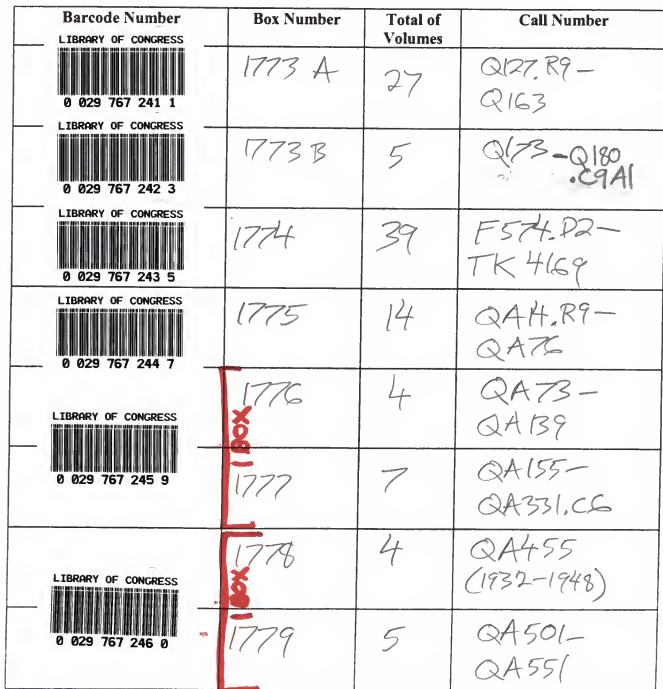 Barcode Number Box Number Total of Volumes Call Number
LIBRARY OF CONGRESS
0 029 767 241 1
1773 A 27 Q127.R9 –
Q163
LIBRARY OF CONGRESS
0 029 767 242 3
1773 B 5 Q173 – Q180
.C9A1
LIBRARY OF CONGRESS
0 029 767 243 5
1774 39 F574.D2 –
TK 4169
LIBRARY OF CONGRESS
0 029 767 244 7
1775 14 QA11.R9 –
QA76
LIBRARY OF CONGRESS
0 029 767 245 9
1 BOX
1776 4 QA73 –
QA139
1777 7 QA155 –
QA331.C6
LIBRARY OF CONGRESS
0 029 767 246 0
1 BOX
1778 4 QA455
(1932-1948)
1779 5 QA501 –
QA551